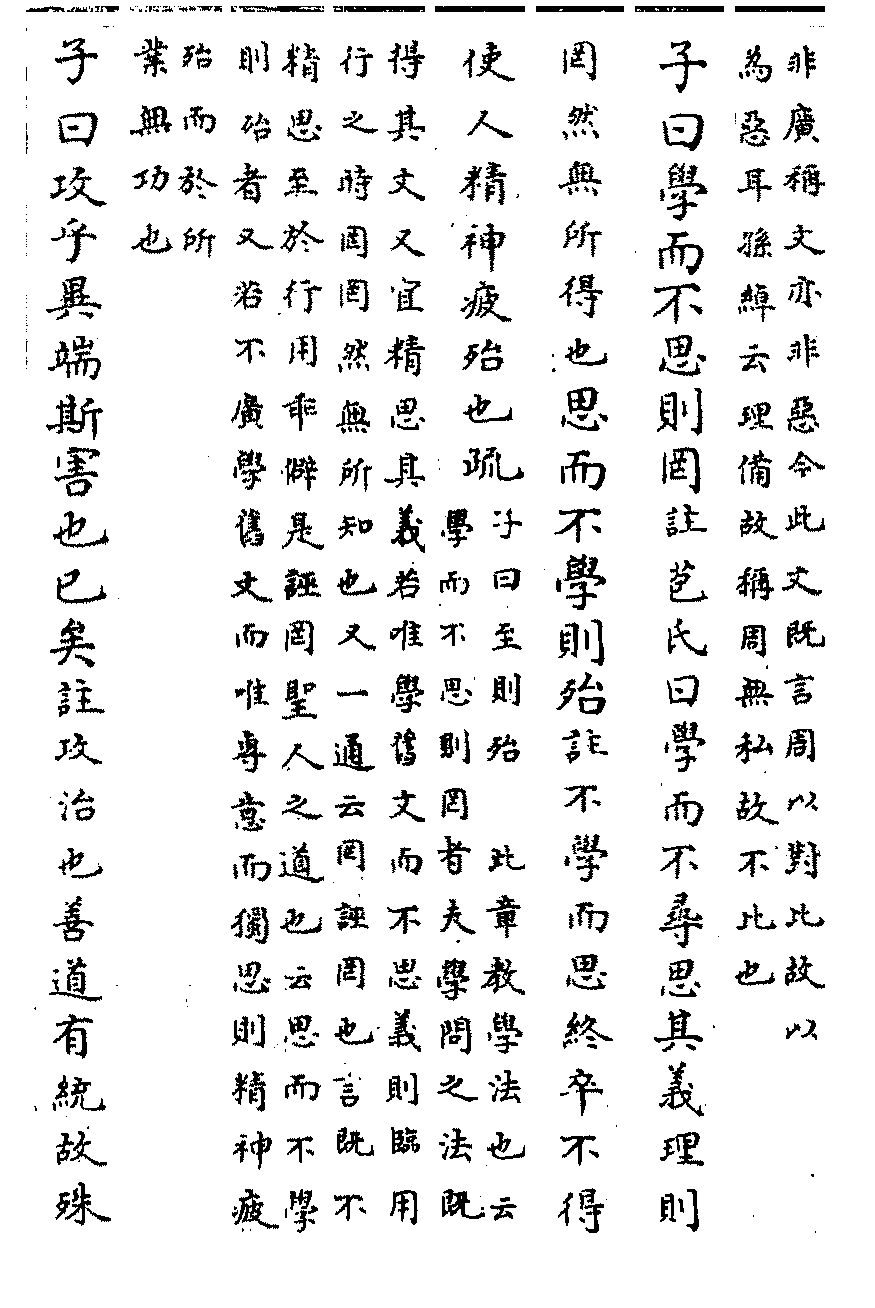 非廣稱文亦非惡今此文既言周以對比故以
為惡耳孫綽云理備故稱周無私故不比也
子曰學而不思則罔註苞氏曰學而不尋思其義理則
罔然無所得也思而不學則殆註不學而思終卒不得
使人精神疲殆也疏
子曰至則殆 此章教學法也云
學而不思則罔者夫學問之法既
得其文又宜精思其義若唯學舊文而不思義則臨用
行之時罔罔然無所知也又一通云罔誣罔也言既不
精思至於行用乖僻是誣罔聖人之道也云思而不學
則殆者又若不廣學舊文而唯專意而獨思則精神疲
殆而於所
業無功也
子曰攻乎異端斯害也已矣註攻治也善道有統故殊